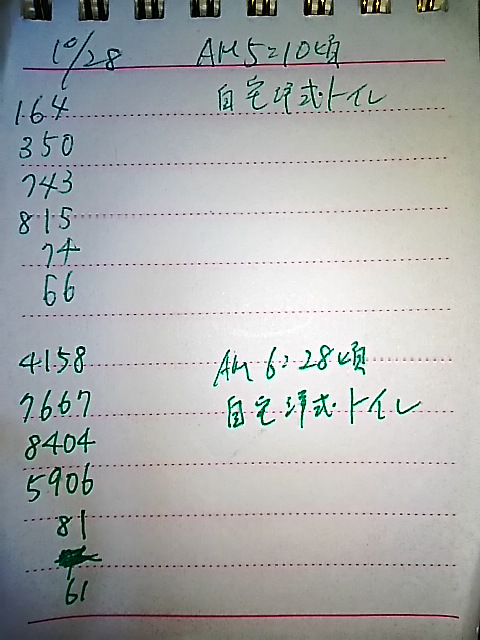 10/28 AM5:10頃
164 自宅洋式トイレ
350
743
815
74
66
4158 AM 6:28頃
7667 自宅洋式トイレ
8404
5906
81
61